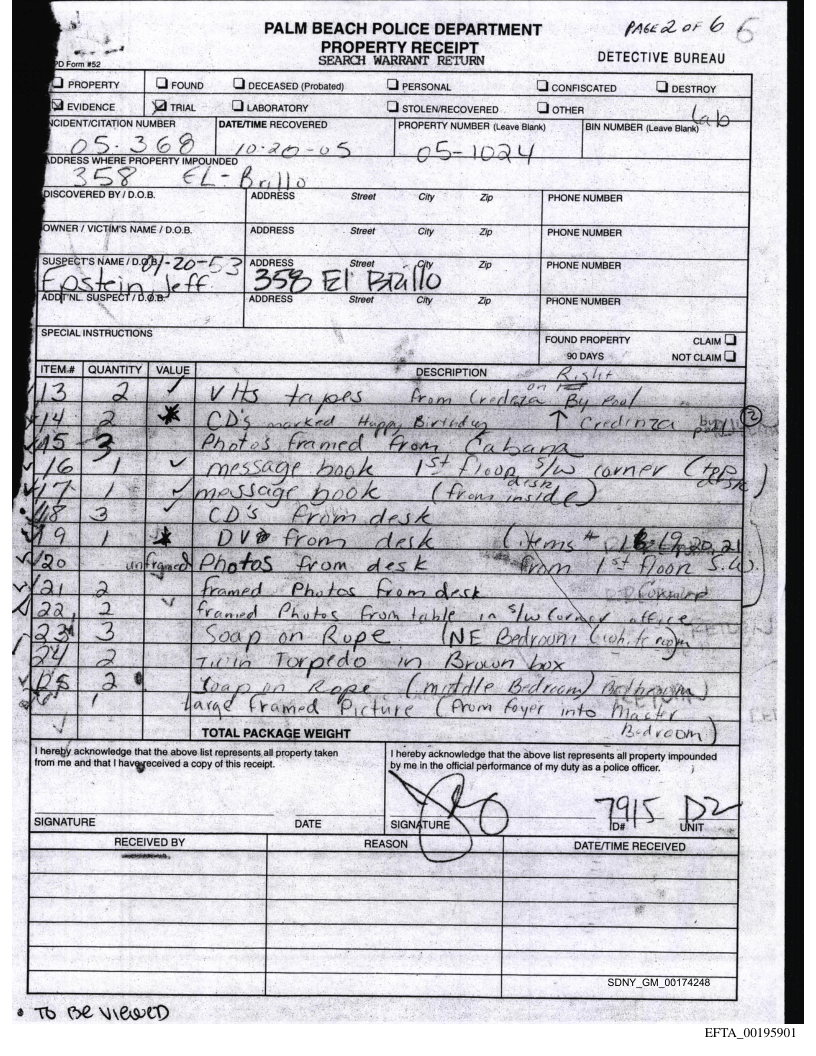 PALM BEACH POLICE DEPARTMENT
PAGE 2 OF 6 6
PROPERTY RECEIPT
SEARCH WARRANT RETURN
DETECTIVE BUREAU
PD Form #52
PROPERTY FOUND DECEASED (Probated) PERSONAL CONFISCATED DESTROY
EVIDENCE TRIAL LABORATORY STOLEN/RECOVERED OTHER Lab
INCIDENT/CITATION NUMBER DATE/TIME RECOVERED PROPERTY NUMBER (Leave Blank) BIN NUMBER (Leave Blank)
05-368 10-20-05 05-1024
ADDRESS WHERE PROPERTY IMPOUNDED
358 EL-Brillo
DISCOVERED BY / D.O.B. ADDRESS Street City Zip PHONE NUMBER
OWNER / VICTIM'S NAME / D.O.B. ADDRESS Street City Zip PHONE NUMBER
SUSPECT'S NAME / D.O.B. 01-20-53 ADDRESS Street City Zip PHONE NUMBER
Epstein, Jeff 358 El Brillo
ADDT'NL. SUSPECT / D.O.B. ADDRESS Street City Zip PHONE NUMBER
SPECIAL INSTRUCTIONS
FOUND PROPERTY CLAIM
90 DAYS NOT CLAIM
ITEM# QUANTITY VALUE DESCRIPTION Right
13 2 ✓ VHs tapes from Credeza on By Pool
14 2 CD's marked Happy Birthday ↑ Credinza 2
15 3 Photos framed from Cabana
16 1 ✓ message book 1st floor s/w corner (top desk)
17 1 ✓ message book (from inside) desk
18 3 ✓ CD's from desk
19 1 DVD from desk (items # 18-19, 20, 21
20 unframed Photos from desk from 1st floor S.W.
21 2 framed Photos from desk
22 2 framed Photos from table in s/w corner office
23 3 Soap on Rope (NE Bedroom (white room
24 2 Twin Torpedo in Brown box
25 2 Soap on Rope (middle Bedroom) Bathroom
1 Large framed Picture (from foyer into Master
Bedroom)
TOTAL PACKAGE WEIGHT
I hereby acknowledge that the above list represents all property taken
from me and that I have received a copy of this receipt.
I hereby acknowledge that the above list represents all property impounded
by me in the official performance of my duty as a police officer.
7915 D2
SIGNATURE DATE SIGNATURE ID# UNIT
RECEIVED BY REASON DATE/TIME RECEIVED
SDNY_GM_00174248
TO BE VIEWED
EFTA_00195901